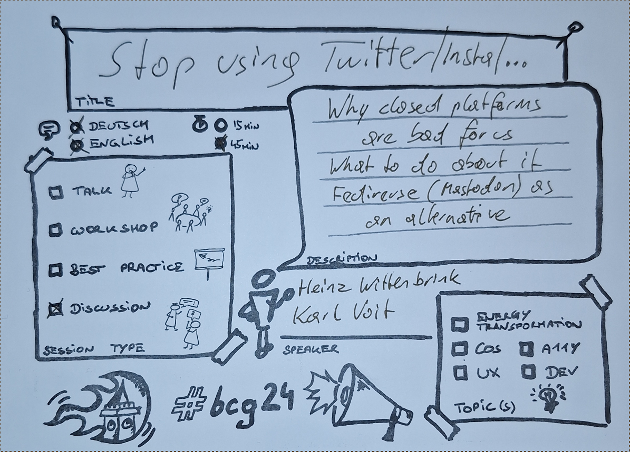 Stop using Twitter/Insta/...
TITLE
DEUTSCH
ENGLISH
15 MIN
45 MIN
Why closed platforms
are bad for us
What to do about it
Fediverse (Mastodon) as
an alternative
DESCRIPTION
TALK
WORKSHOP
BEST PRACTICE
DISCUSSION
SESSION TYPE
Heinz Wittenbrink
Karl Voit
SPEAKER
ENERGY
TRANSFORMATION
COS
A11Y
UX
DEV
TOPIC(S)
#bcg24